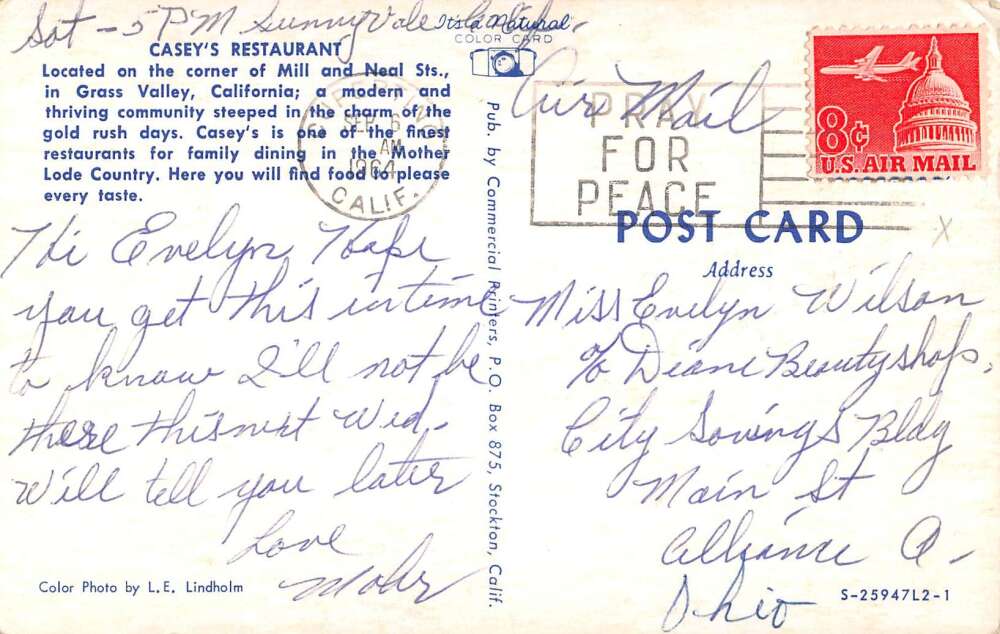 Sat - 5 PM Sunnyvale Calif.
It's a Natural
COLOR CARD
CASEY'S RESTAURANT
Located on the corner of Mill and Neal Sts.,
in Grass Valley, California; a modern and
thriving community steeped in the charm of the
gold rush days. Casey's is one of the finest
restaurants for family dining in the Mother
Lode Country. Here you will find food to please
every taste.
SEP 6
AM
1964
CALIF.
Hi Evelyn Hope
you get this in time
to know I'll not be
there this next Wed.
Will tell you later
Love
Color Photo by L. E. Lindholm
Pub. by Commercial Printers, P.O. Box 875, Stockton, Calif.
Air Mail
PRAY
FOR
PEACE
8¢
U.S. AIR MAIL
POST CARD
Address
Miss Evelyn Wilson
c/o Diane Beauty shop,
City Savings Bldg
Main St
Alliance O-
Ohio
S-25947L2-1
X